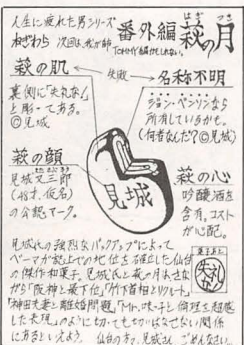 人生に疲れた男シリーズ
番外編 萩の月
はぎ
ねぎわら 次回は、我が師
TOMMY編かもしれない。
萩の肌
失敗
名称不明
裏側に「失丸な!」
と彫ってある。
©見城
ジョン・ペンリンなら
所有しているかも。
(何者なんだ?©見城)
萩の顔
見城文三郎
(48才、仮名)
の公認マーク。
見城
萩の心
吟醸酒を
含有。コスト
が心配。
見城氏の強烈なバックアップによって
ベーマガ誌上での地位を確立した仙台
の傑作和菓子。見城氏と萩の月あさながら
「阪神と最下位」「竹下首相とリクルート」
「神田夫妻と離婚問題」「Mr.味っ子と倫理を超越
した表現」のように切ってもきりはなせない関係
にあるといえよう。
仙台の方々、見城さん、ごめんなさい。